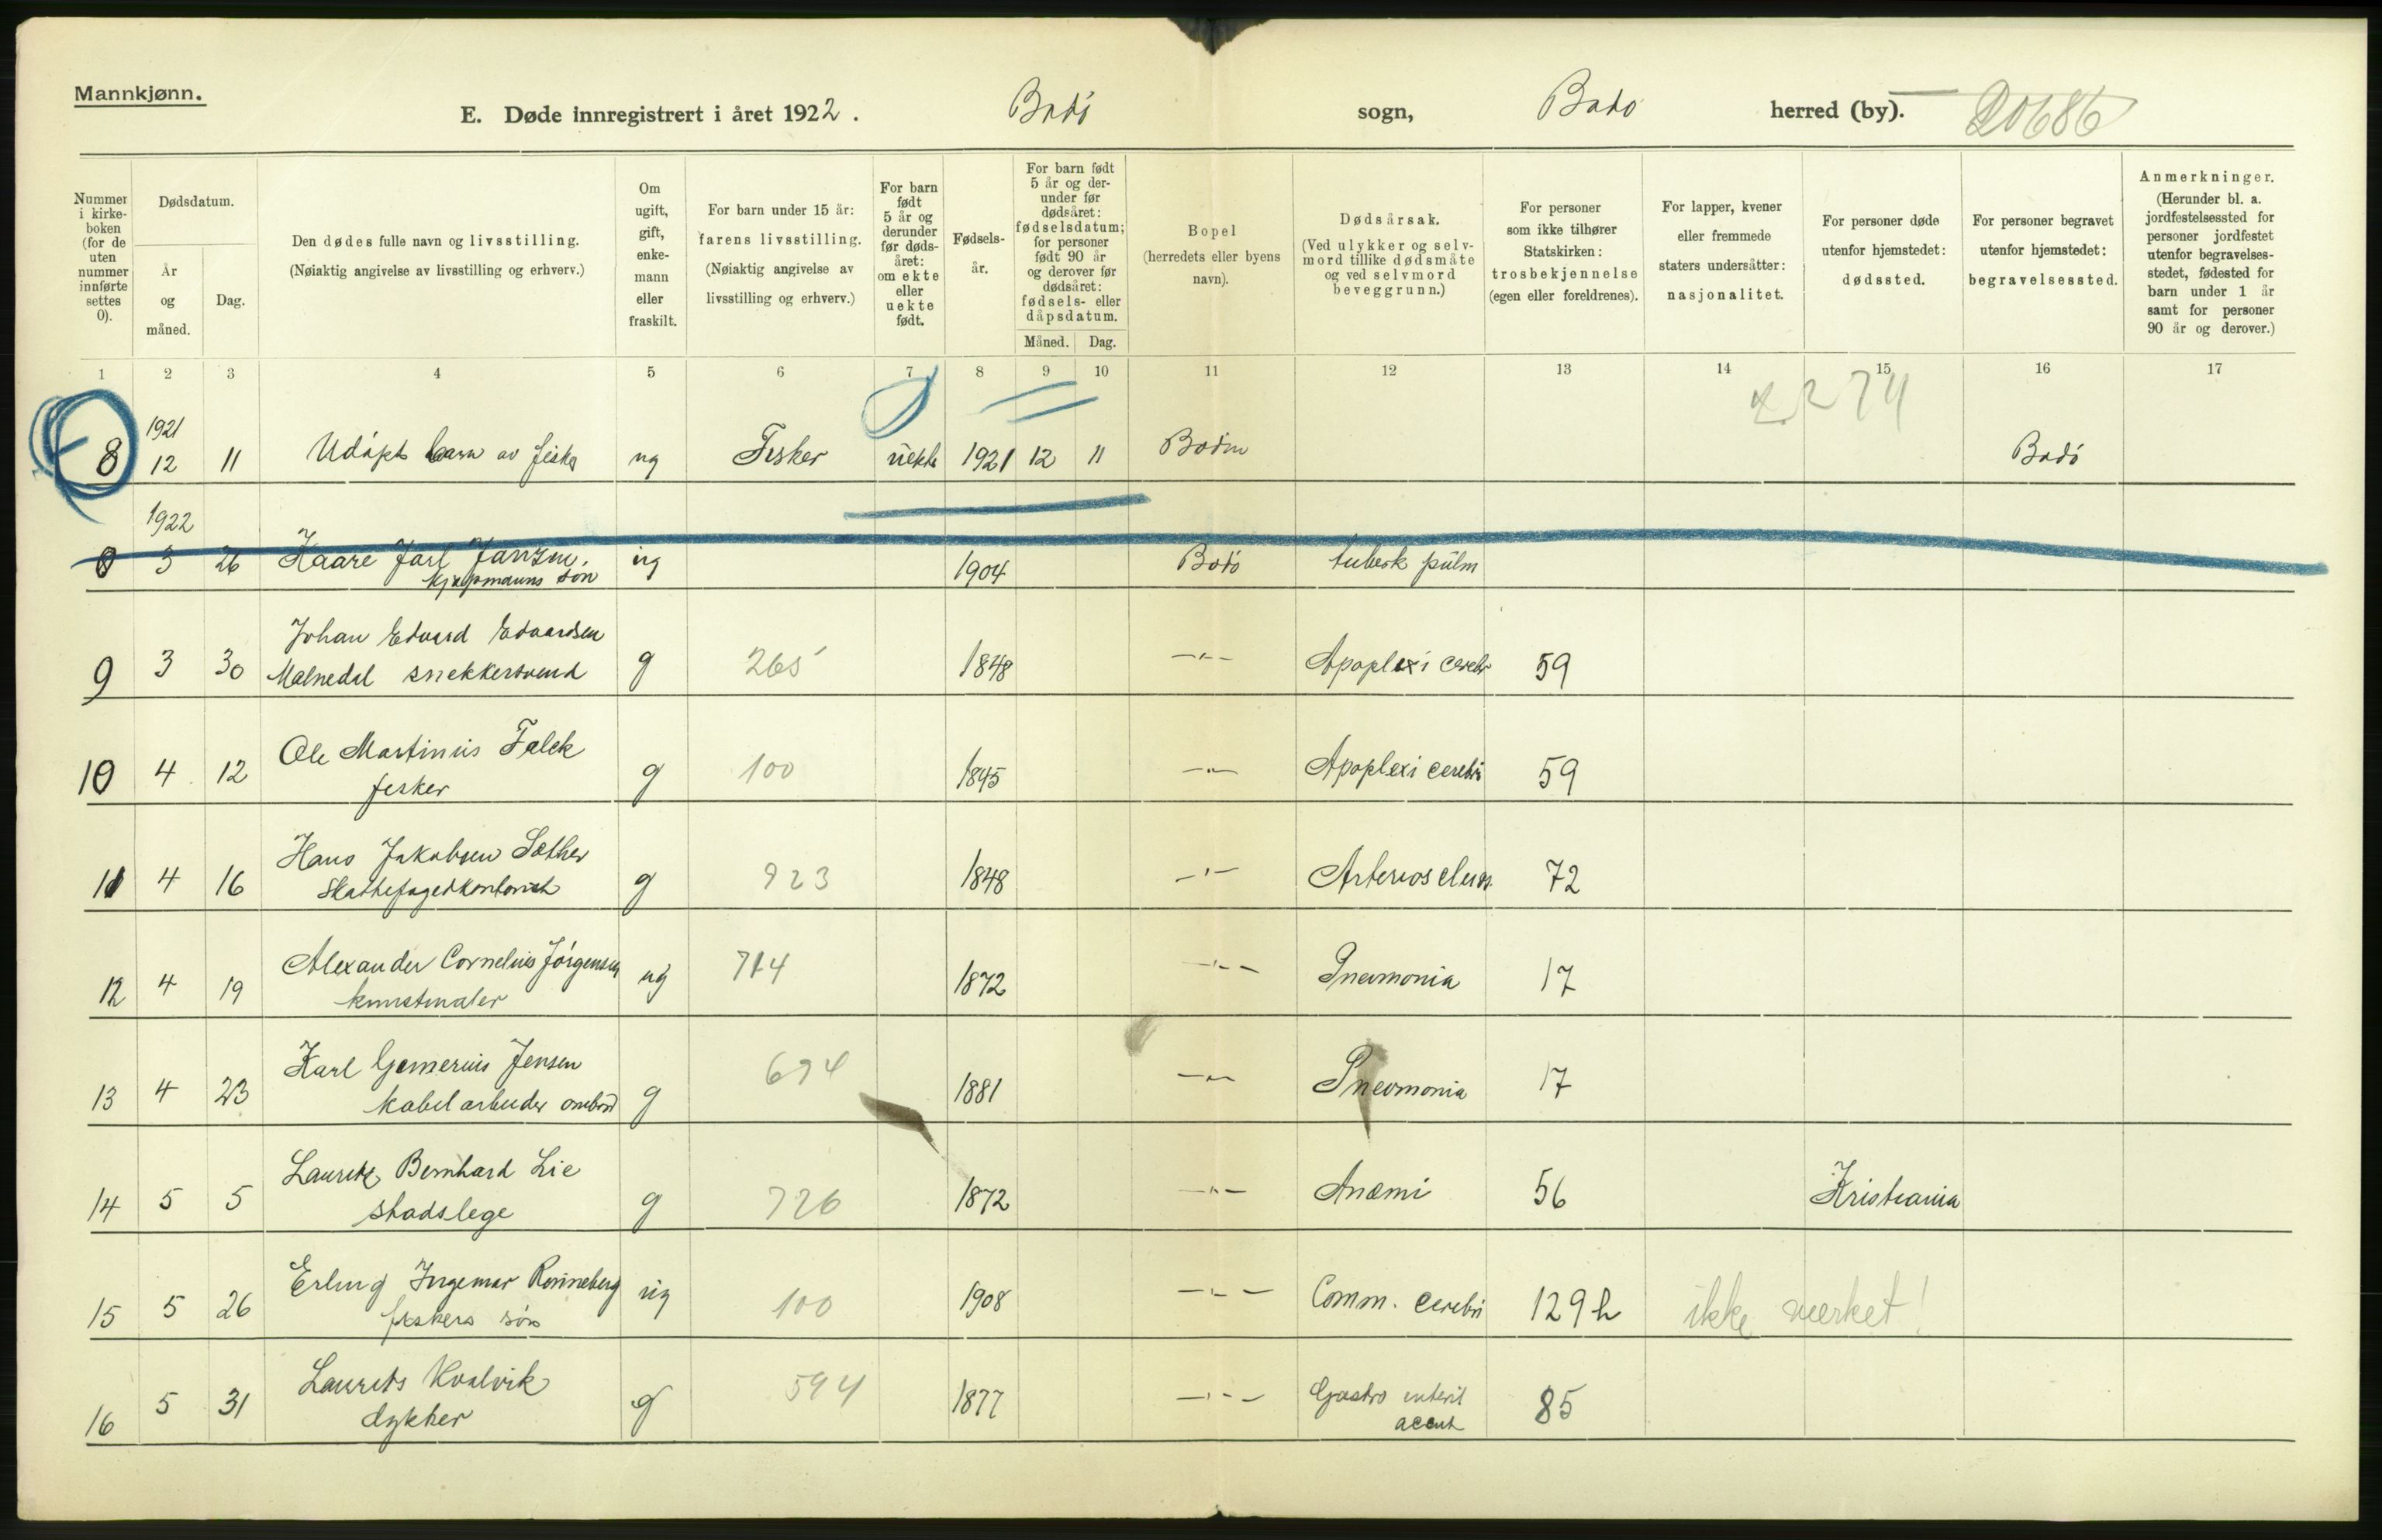 Mannkjønn.
E. Døde innregistrert i året 1922. Bodö sogn, Bodö herred (by). 20686
Nummer i kirke-boken (for de uten nummer innførte settes 0).
Dødsdatum.
År og måned.
Dag.
Den dødes fulle navn og livsstilling.
(Nøiaktig angivelse av livsstilling og erhverv.)
Om ugift, gift, enke-mann eller fraskilt.
For barn under 15 år:
farens livsstilling.
(Nøiaktig angivelse av livsstilling og erhverv.)
For barn født 5 år og derunder før døds-året: om ekte eller uekte født.
Fødsels-år.
For barn født 5 år og der-under før dødsåret: fødselsdatum; for personer født 90 år og derover før dødsåret: fødsels- eller dåpsdatum.
Måned. Dag.
Bopel
(herredets eller byens navn).
Dødsårsak.
(Ved ulykker og selv-mord tillike dødsmåte og ved selvmord beveggrunn.)
For personer som ikke tilhører Statskirken: trosbekjennelse (egen eller foreldrenes).
For lapper, kvener eller fremmede staters undersåtter: nasjonalitet.
For personer døde utenfor hjemstedet: dødssted.
For personer begravet utenfor hjemstedet: begravelsessted.
Anmerkninger.
(Herunder bl. a. jordfestelsessted for personer jordfestet utenfor begravelses-stedet, fødested for barn under 1 år samt for personer 90 år og derover.)
1 2 3 4 5 6 7 8 9 10 11 12 13 14 15 16 17
1921
8 12 11 Udöpt barn av fisker ug Fisker uekte 1921 12 11 Bodin Bodö
1922
0 3 26 Haare Jarl Jansen, ug 1904 Bodö tuberk pulm
kjøpmanns søn
Johan Edvard Edvardsen
9 3 30 Malnedal snekkersvend g 265 1848 -"- Apoplexi cerebr 59
Ole Martinius Falck
10 4 12 fisker g 100 1845 -"- Apoplexi cerebri 59
Hans Jakobsen Sæther
11 4 16 Skattefogedkontorist g 923 1848 -"- Arterioscleros 72
Alexander Cornelius Jörgensen
12 4 19 kunstmaler ug 714 1872 -"- Pneumonia 17
Karl Gemerius Jensen
13 4 23 kabelarbeider ombord g 694 1881 -"- Pneumonia 17
Lauritz Bernhard Lie
14 5 5 stadslege g 726 1872 -"- Anæmi 56 Kristiania
Erling Ingemar Rønneberg
15 5 26 fiskers søn ug 100 1908 -"- Comm. cerebri 129 h ikke merket!
Laurits Kvalvik
16 5 31 dykker g 594 1877 -"- Gastro enterit 85
accut